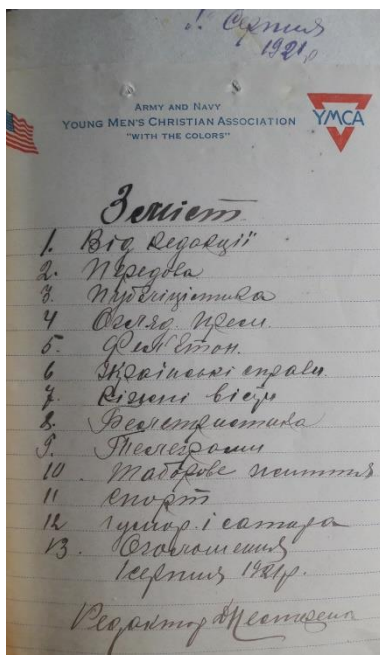 1. Серпня
1921 р
ARMY AND NAVY
YOUNG MEN'S CHRISTIAN ASSOCIATION
"WITH THE COLORS"
YMCA
Зміст
1. Від Редакції
2. Передова
3. Публіцистика
4 Огляд преси.
5. Фельєтон.
6 Українські справи.
7. Ріжні вісти
8. Белетристика
9. Телеграми
10. Таборове життя
11 Спорт
12 Гумор і сатира
13. Оголошення
1 серпня 1921 р.
Редактор